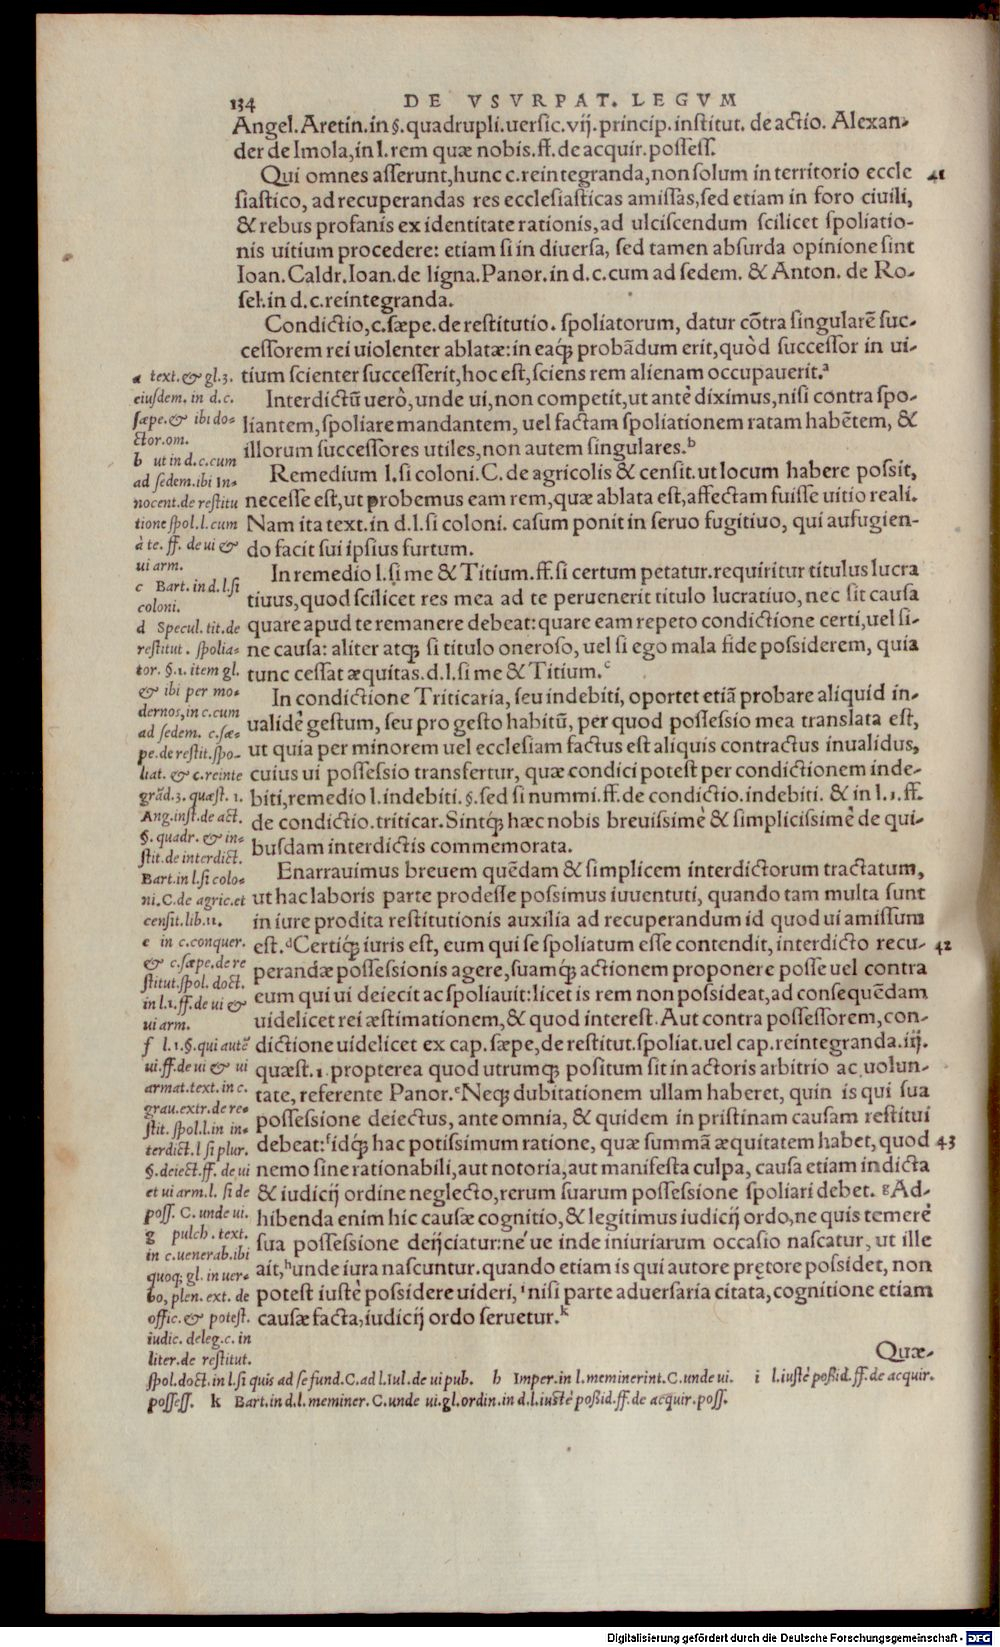 134 DE VSVRPAT. LEGVM
Angel. Aretin. in §. quadrupli. uersic. vij. princip. institut. de actio. Alexan-
der de Imola, in l. rem quæ nobis. ff. de acquir. possess.
Qui omnes asserunt, hunc c. reintegranda, non solum in territorio eccle 41
siastico, ad recuperandas res ecclesiasticas amissas, sed etiam in foro ciuili,
& rebus profanis ex identitate rationis, ad ulciscendum scilicet spoliatio-
nis uitium procedere: etiam si in diuersa, sed tamen absurda opinione sint
Ioan. Caldr. Ioan. de ligna. Panor. in d. c. cum ad sedem. & Anton. de Ro-
sel. in d. c. reintegranda.
Condictio, c. sæpe. de restitutio. spoliatorum, datur cõtra singularẽ suc-
cessorem rei uiolenter ablatæ: in eaq́; probãdum erit, quòd successor in ui-
tium scienter successerit, hoc est, sciens rem alienam occupauerit.ª
Interdictũ uerò, unde ui, non competit, ut antè diximus, nisi contra spo-
liantem, spoliare mandantem, uel factam spoliationem ratam habẽtem, &
illorum successores utiles, non autem singulares.ᵇ
Remedium l. si coloni. C. de agricolis & censit. ut locum habere possit,
necesse est, ut probemus eam rem, quæ ablata est, affectam fuisse uitio reali.
Nam ita text. in d. l. si coloni. casum ponit in seruo fugitiuo, qui aufugien-
do facit sui ipsius furtum.
In remedio l. si me & Titium. ff. si certum petatur. requiritur titulus lucra
tiuus, quod scilicet res mea ad te peruenerit titulo lucratiuo, nec sit causa
quare apud te remanere debeat: quare eam repeto condictione certi, uel si-
ne causa: aliter atq; si titulo oneroso, uel si ego mala fide possiderem, quia
tunc cessat æquitas. d. l. si me & Titium.ᶜ
In condictione Triticaria, seu indebiti, oportet etiã probare aliquid in-
ualidè gestum, seu pro gesto habitũ, per quod possessio mea translata est,
ut quia per minorem uel ecclesiam factus est aliquis contractus inualidus,
cuius ui possessio transfertur, quæ condici potest per condictionem inde-
biti, remedio l. indebiti. §. sed si nummi. ff. de condictio. indebiti. & in l. 1. ff.
de condictio. triticar. Sintq́; hæc nobis breuissimè & simplicissimè de qui-
busdam interdictis commemorata.
Enarrauimus breuem quẽdam & simplicem interdictorum tractatum,
ut hac laboris parte prodesse possimus iuuentuti, quando tam multa sunt
in iure prodita restitutionis auxilia ad recuperandum id quod ui amissum
est.ᵈ Certiq́; iuris est, eum qui se spoliatum esse contendit, interdicto recu- 42
perandæ possessionis agere, suamq́; actionem proponere posse uel contra
eum qui ui deiecit ac spoliauit: licet is rem non possideat, ad consequẽdam
uidelicet rei æstimationem, & quod interest. Aut contra possessorem, con-
dictione uidelicet ex cap. sæpe, de restitut. spoliat. uel cap. reintegranda. iij.
quæst. 1. propterea quod utrumq; positum sit in actoris arbitrio ac uolun-
tate, referente Panor.ᵉ Neq; dubitationem ullam haberet, quin is qui sua
possessione deiectus, ante omnia, & quidem in pristinam causam restitui
debeat:ᶠ idq́; hac potissimum ratione, quæ summã æquitatem habet, quod 43
nemo sine rationabili, aut notoria, aut manifesta culpa, causa etiam indicta
& iudicij ordine neglecto, rerum suarum possessione spoliari debet. ᵍ Ad-
hibenda enim hic causæ cognitio, & legitimus iudicij ordo, ne quis temerè
sua possessione deijciatur: ne'ue inde iniuriarum occasio nascatur, ut ille
ait,ʰ unde iura nascuntur. quando etiam is qui autore prętore possidet, non
potest iustè possidere uideri, ⁱ nisi parte aduersaria citata, cognitione etiam
causæ facta, iudicij ordo seruetur.ᵏ
Quæ-
a text. & gl. 3.
eiusdem. in d. c.
sæpe. & ibi do-
ctor. om.
b ut in d. c. cum
ad sedem. ibi In-
nocent. de restitu
tione spol. l. cum
à te. ff. de ui &
ui arm.
c Bart. in d. l. si
coloni.
d Specul. tit. de
restitut. spolia-
tor. §. 1. item gl.
& ibi per mo-
dernos, in c. cum
ad sedem. c. sæ-
pe. de restit. spo-
liat. & c. reinte
grãd. 3. quæst. 1.
Ang. inst. de act.
§. quadr. & in-
stit. de interdict.
Bart. in l. si colo-
ni. C. de agric. et
censit. lib. 11.
e in c. conquer.
& c. sæpe. de re
stitut. spol. doct.
in l. 1. ff. de ui &
ui arm.
f l. 1. §. qui autẽ
ui. ff. de ui & ui
armat. text. in c.
grau. extr. de re-
stit. spol. l. in in-
terdict. l si plur.
§. deiect. ff. de ui
et ui arm. l. si de
poss. C. unde ui.
g pulch. text.
in c. uenerab. ibi
quoq; gl. in uer-
bo, plen. ext. de
offic. & potest.
iudic. deleg. c. in
liter. de restitut.
spol. doct. in l. si quis ad se fund. C. ad l. Iul. de ui pub. h Imper. in l. meminerint. C. unde ui. i l. iustè poßid. ff. de acquir.
possess. k Bart. in d. l. meminer. C. unde ui. gl. ordin. in d. l. iustè poßid. ff. de acquir. poss.
Digitalisierung gefördert durch die Deutsche Forschungsgemeinschaft - DFG